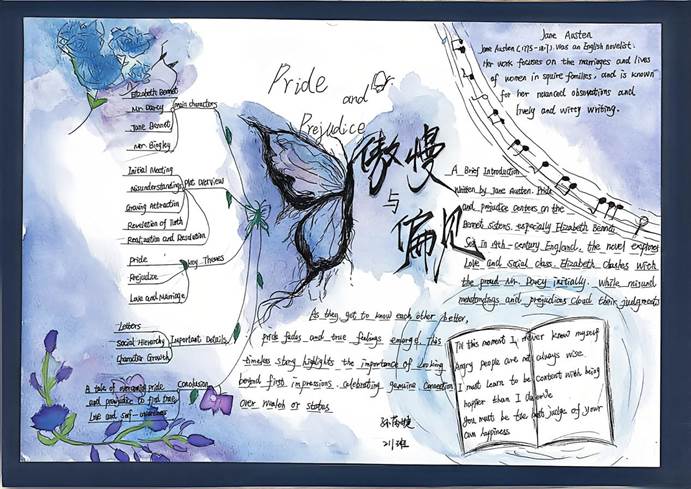 Pride
and
Prejudice
傲慢
与
偏见
Jane Austen
Jane Austen (1775-1817), was an English novelist.
Her work focuses on the marriages and lives
of women in squire families, and is known
for her nuanced observations and
lively and witty writing.
Elizabeth Bennet
Mr. Darcy
Jane Bennet
Mr. Bingley
main characters
Initial Meeting
Misunderstandings
Growing Attraction
Revelation of Truth
Realization and Resolution
Plot Overview
Pride
Prejudice
Love and Marriage
Key Themes
Letters
Social Hierarchy
Character Growth
Important Details
A tale of overcoming pride
and prejudice to find true
love and self-awareness
Conclusion
A Brief Introduction
Written by Jane Austen, Pride
and prejudice centers on the
Bennet sisters, especially Elizabeth Bennet.
Set in 19th-century England, the novel explores
Love and social class. Elizabeth clashes with
the proud Mr. Darcy initially, while misund
erstandings and prejudices cloud their judgments
As they get to know each other better,
pride fades and true feelings emerge. This
timeless story highlights the importance of looking
beyond first impressions, celebrating genuine connection
over wealth or status
Til this moment I never know myself
Angry people are not always wise.
I must learn to be content with being
happier than I deserve
You must be the best judge of your
own happiness.
211班